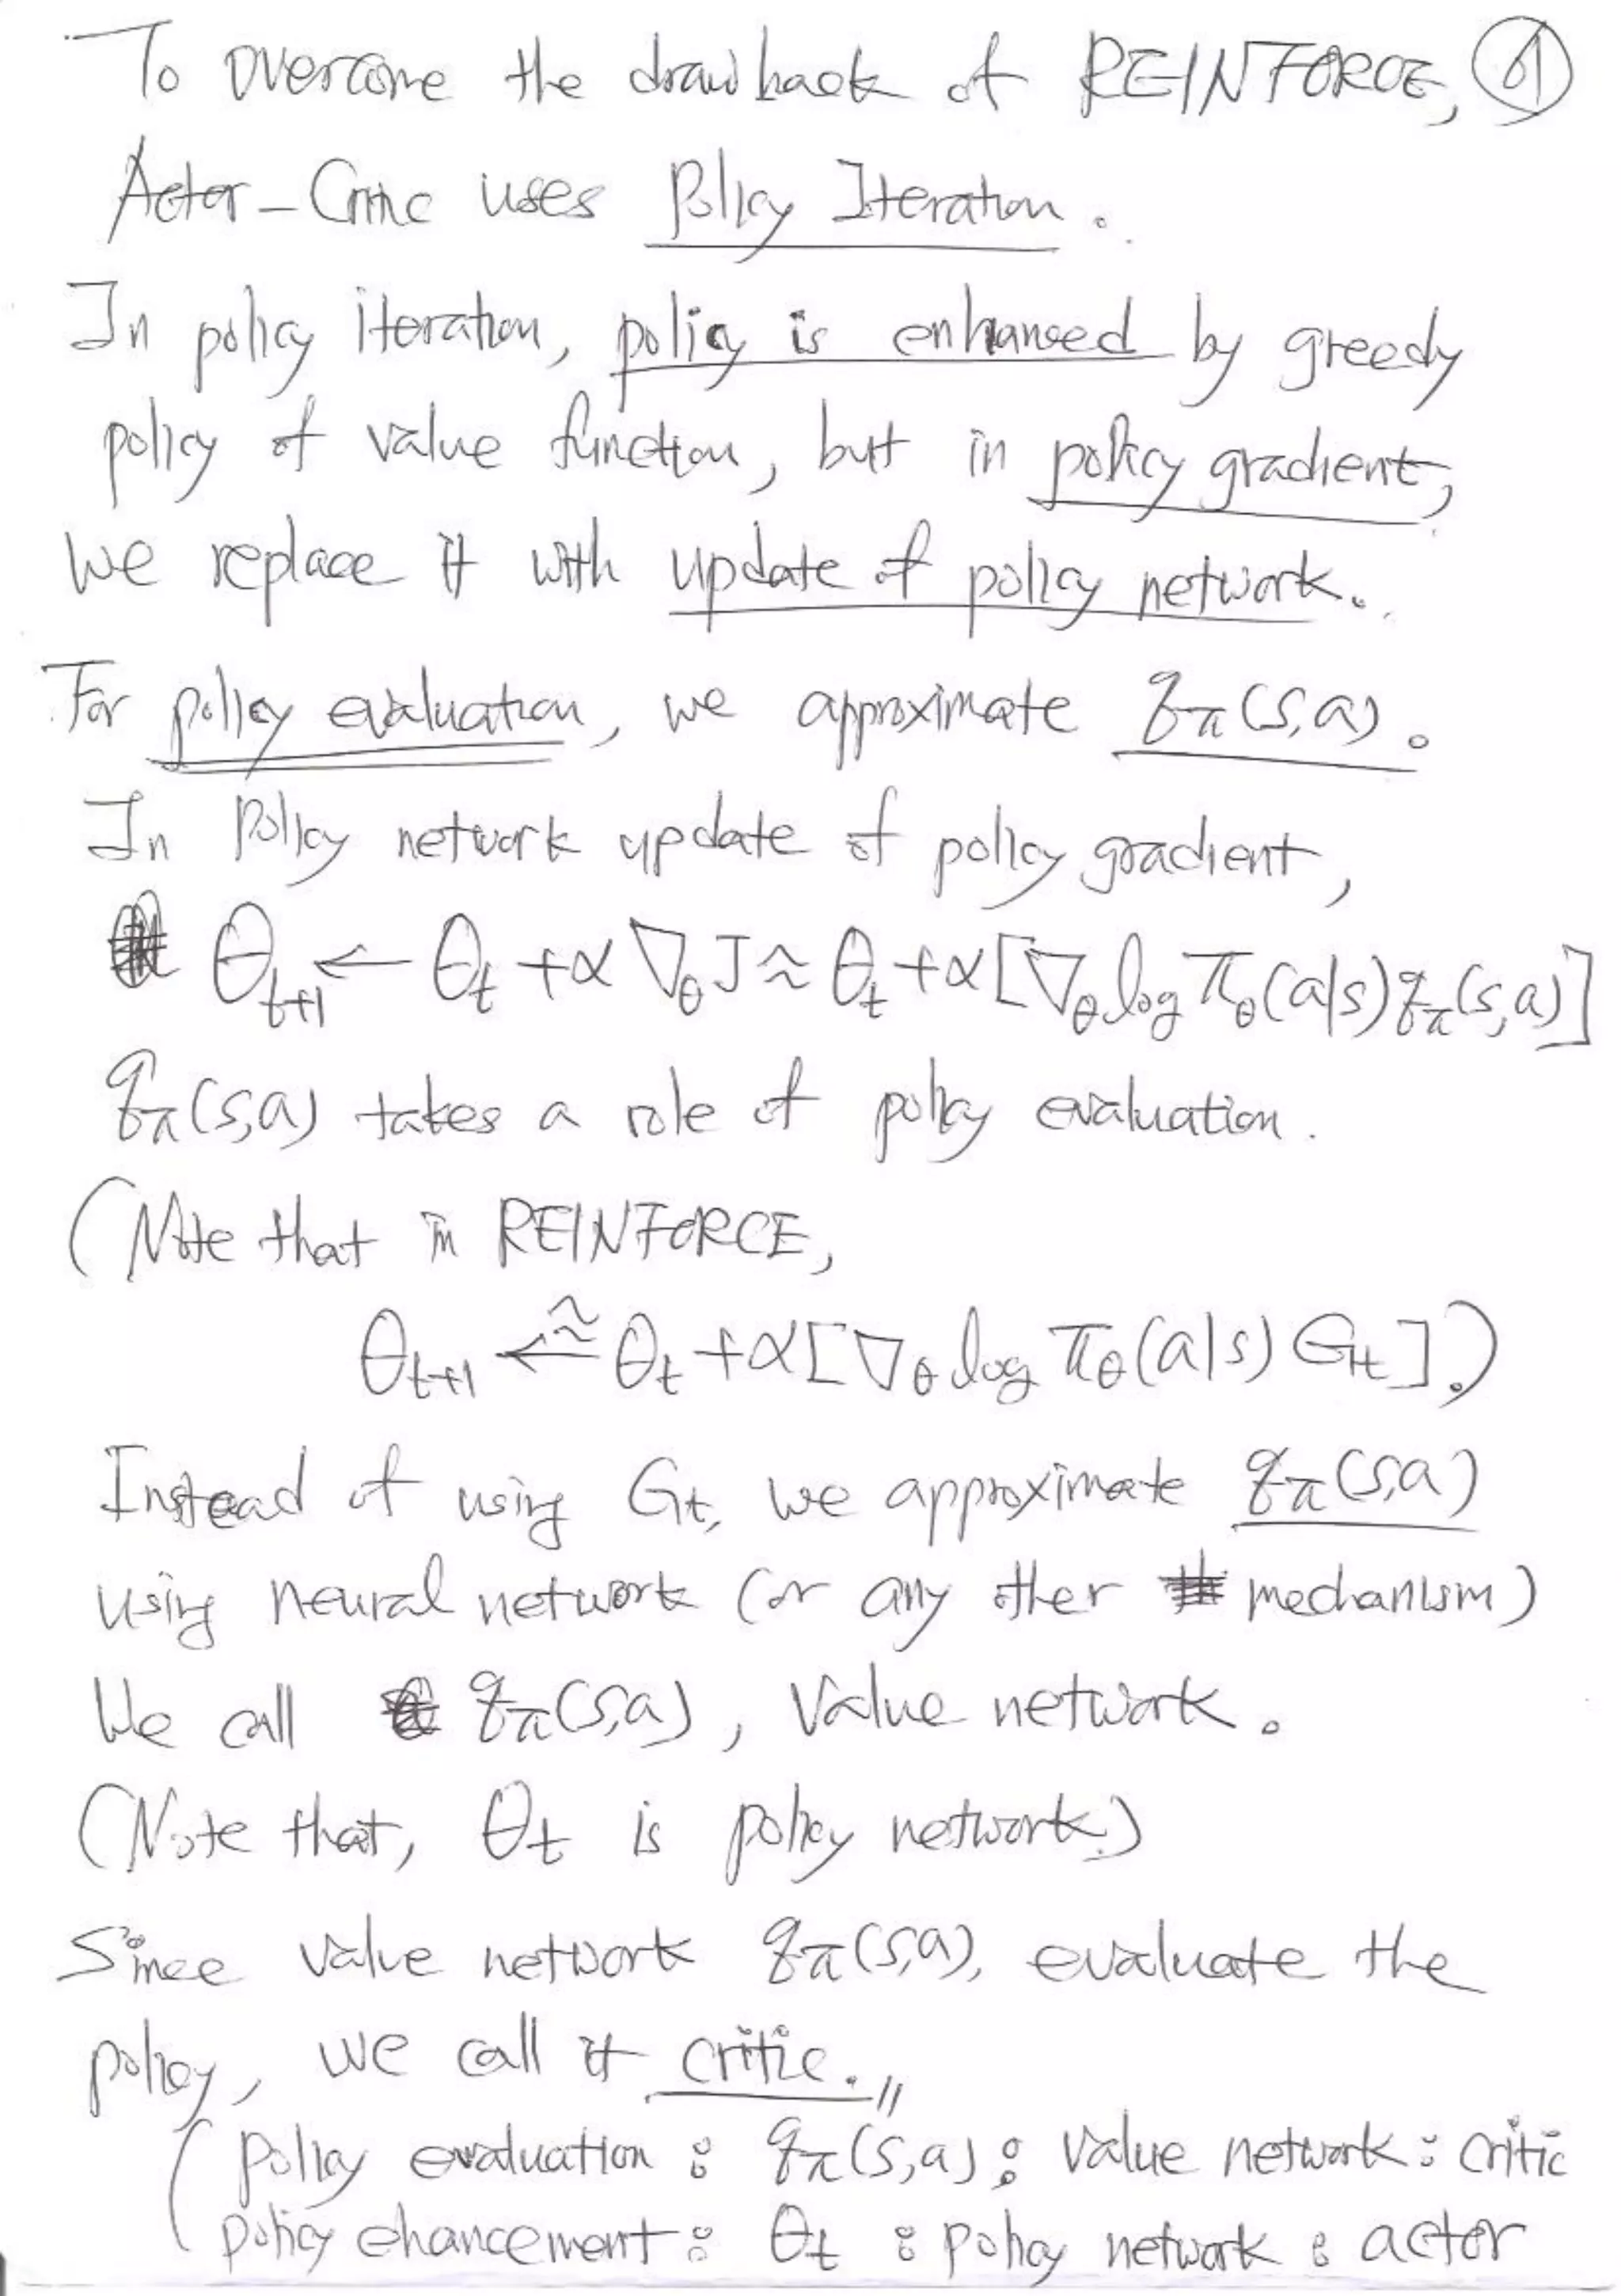 To overcome the drawback of REINFORCE,
Actor-Critic uses Policy Iteration.
In policy iteration, policy is enhanced by greedy
policy of value function, but in policy gradient,
we replace it with update of policy network.
For policy evaluation, we approximate qπ(s,a).
In Policy network update of policy gradient,
θt+1 ← θt + α ∇θ J ≈ θt + α [∇θ log πθ(a|s) qπ(s,a)]
qπ(s,a) takes a role of policy evaluation.
(Note that in REINFORCE,
θt+1 ←≈ θt + α [∇θ log πθ(a|s) Gt].)
Instead of using Gt, we approximate qπ(s,a)
using neural network (or any other mechanism)
We call qπ(s,a), Value network.
(Note that, θt is policy network.)
Since value network qπ(s,a), evaluate the
policy, we call it critic.
(policy evaluation : qπ(s,a) : Value network : critic
policy ehancement : θt : policy network : actor